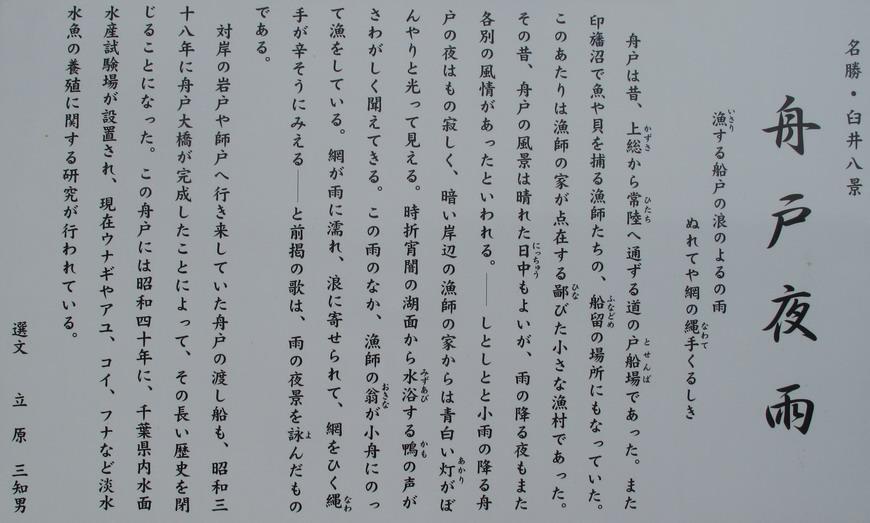 名勝・臼井八景
舟戸夜雨
漁する船戸の浪のよるの雨
ぬれてや網の縄手くるしき
舟戸は昔、上総から常陸へ通ずる道の戸船場であった。また
印旛沼で魚や貝を捕る漁師たちの、船留の場所にもなっていた。
このあたりは漁師の家が点在する鄙びた小さな漁村であった。
その昔、舟戸の風景は晴れた日中もよいが、雨の降る夜もまた
各別の風情があったといわれる。――しとしとと小雨の降る舟
戸の夜はもの寂しく、暗い岸辺の漁師の家からは青白い灯がぼ
んやりと光って見える。時折宵闇の湖面から水浴する鴨の声が
さわがしく聞えてきる。この雨のなか、漁師の翁が小舟にのっ
て漁をしている。網が雨に濡れ、浪に寄せられて、網をひく縄
手が辛そうにみえる――と前掲の歌は、雨の夜景を詠んだもの
である。
対岸の岩戸や師戸へ行き来していた舟戸の渡し船も、昭和三
十八年に舟戸大橋が完成したことによって、その長い歴史を閉
じることになった。この舟戸には昭和四十年に、千葉県内水面
水産試験場が設置され、現在ウナギやアユ、コイ、フナなど淡水
水魚の養殖に関する研究が行われている。
選文 立原三知男